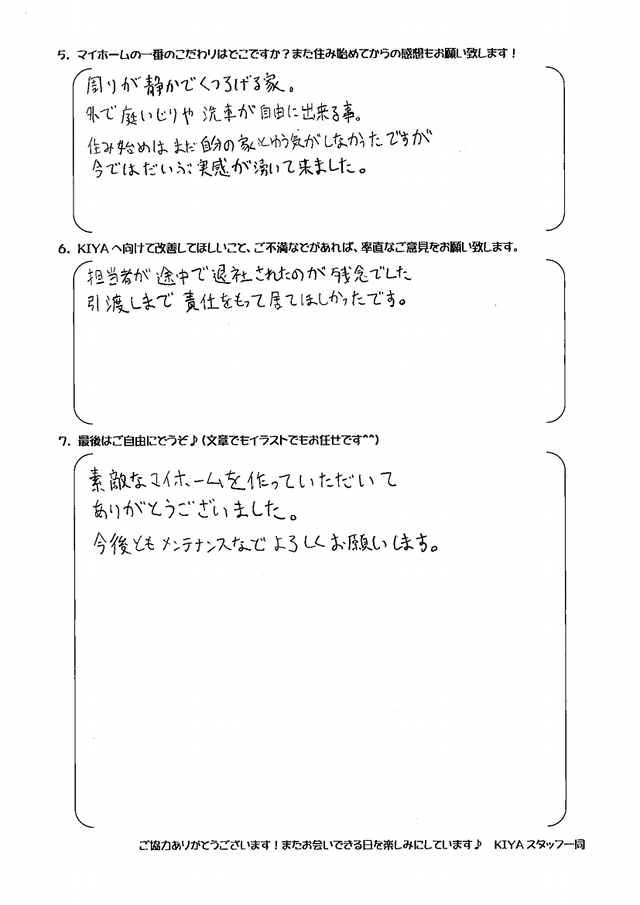 5. マイホームの一番のこだわりはどこですか？また住み始めてからの感想もお願い致します！
周りが静かでくつろげる家。
外で庭いじりや洗車が自由に出来る事。
住み始めはまだ自分の家とゆう気がしなかったですが
今ではだいぶ実感が湧いて来ました。
6. KIYAへ向けて改善してほしいこと、ご不満などがあれば、率直なご意見をお願い致します。
担当者が途中で退社されたのが残念でした
引渡しまで責任をもって居てほしかったです。
7. 最後はご自由にどうぞ♪(文章でもイラストでもお任せです^^)
素敵なマイホームを作っていただいて
ありがとうございました。
今後ともメンテナンスなどよろしくお願いします。
ご協力ありがとうございます！またお会いできる日を楽しみにしています♪ KIYAスタッフ一同